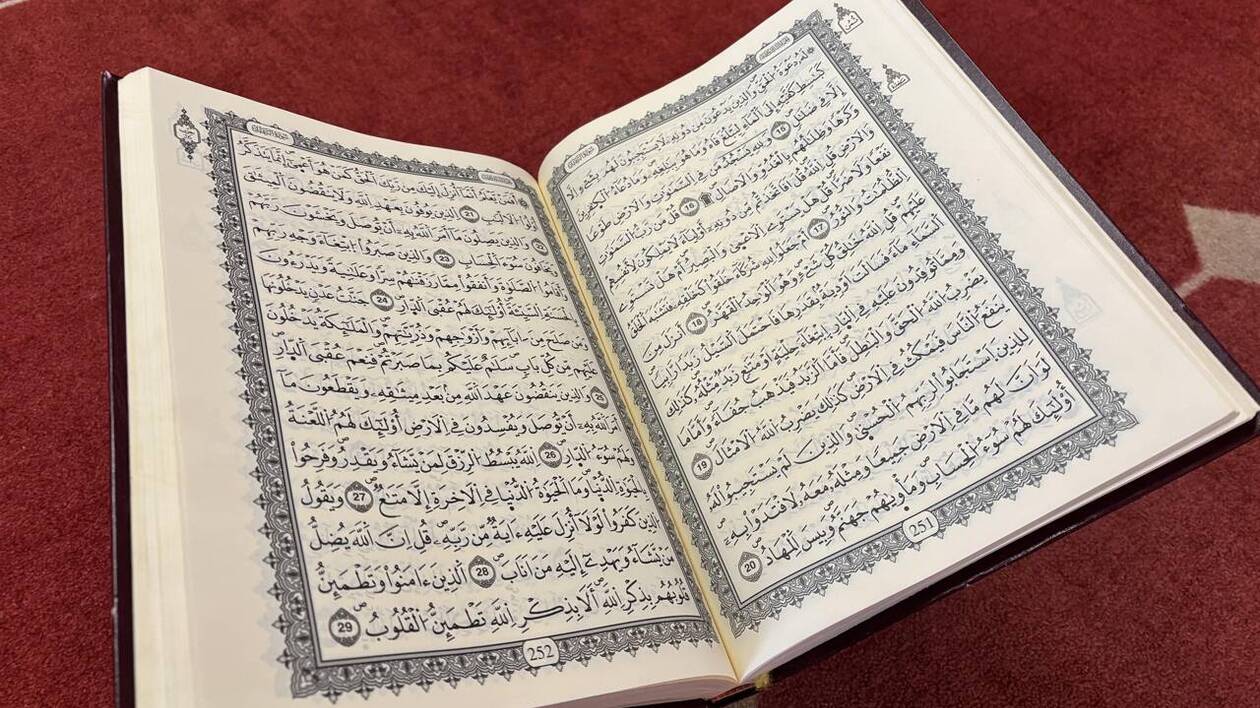 ۞ لَهُۥ دَعْوَةُ اُ۬لْحَقِّ وَالذِينَ يَدْعُونَ مِن دُونِهِۦ لَا يَسْتَجِيبُونَ لَهُم بِشَےْءٍ اِلَّا
كَبَٰسِطِ كَفَّيْهِ إِلَى اَ۬لْمَآءِ لِيَبْلُغَ فَاهُ وَمَا هُوَ بِبَٰلِغِهِۦ وَمَا دُعَآءُ اُ۬لْكٰ۪فِرِينَ
إِلَّا فِے ضَلَٰلٖ 15 وَلِلهِ يَسْجُدُ مَن فِے اِ۬لسَّمَٰوَٰتِ وَالَارْضِ طَوْعاٗ
وَكَرْهاٗ وَظِلَٰلُهُم بِالْغُدُوِّ وَالَاصَالِ ۩ 16 قُلْ مَن رَّبُّ اُ۬لسَّمَٰوَٰتِ
وَالَارْضِ قُلِ اِ۬للَّهُ قُلَ اَفَاتَّخَذتُّم مِّن دُونِهِۦٓ أَوْلِيَآءَ لَا يَمْلِكُونَ لِأَنفُسِهِمْ
نَفْعاٗ وَلَا ضَرّاٗ قُلْ هَلْ يَسْتَوِے اِ۬لَاعْم۪ىٰ وَالْبَصِيرُ أَمْ هَلْ تَسْتَوِے
اِ۬لظُّلُمَٰتُ وَالنُّورُ 17 أَمْ جَعَلُواْ لِلهِ شُرَكَآءَ خَلَقُواْ كَخَلْقِهِۦ فَتَشَٰبَهَ اَ۬لْخَلْقُ
عَلَيْهِمْ قُلِ اِ۬للَّهُ خَٰلِقُ كُلِّ شَےْءٖ وَهُوَ اَ۬لْوَٰحِدُ اُ۬لْقَهَّٰرُ 18 أَنزَلَ مِنَ
اَ۬لسَّمَآءِ مَآءٗ فَسَالَتَ اَوْدِيَةُۢ بِقَدَرِهَا فَاحْتَمَلَ اَ۬لسَّيْلُ زَبَداٗ رَّابِياٗ
وَمِمَّا تُوقِدُونَ عَلَيْهِ فِے اِ۬لنّ۪ارِ اِ۪بْتِغَآءَ حِلْيَةٍ اَوْ مَتَٰعٖ زَبَدٞ مِّثْلُهُۥ كَذَٰلِكَ
يَضْرِبُ اُ۬للَّهُ اُ۬لْحَقَّ وَالْبَٰطِلَ فَأَمَّا اَ۬لزَّبَدُ فَيَذْهَبُ جُفَآءٗ وَأَمَّا مَا
يَنفَعُ اُ۬لنَّاسَ فَيَمْكُثُ فِے اِ۬لَارْضِ كَذَٰلِكَ يَضْرِبُ اُ۬للَّهُ اُ۬لَامْثَالَ 19
لِلذِينَ اَ۪سْتَجَابُواْ لِرَبِّهِمُ اُ۬لْحُسْن۪ىٰ وَالذِينَ لَمْ يَسْتَجِيبُواْ لَهُۥ
لَوَ اَنَّ لَهُم مَّا فِے اِ۬لَارْضِ جَمِيعاٗ وَمِثْلَهُۥ مَعَهُۥ لَافْتَدَوْاْ بِهِۦٓ
أُوْلَٰٓئِكَ لَهُمْ سُوٓءُ اُ۬لْحِسَابِ وَمَأْو۪يٰهُمْ جَهَنَّمُ وَبِيسَ اَ۬لْمِهَادُ 20
251
۞ أَفَمَنْ يَّعْلَمُ أَنَّمَآ أُنزِلَ إِلَيْكَ مِن رَّبِّكَ اَ۬لْحَقُّ كَمَنْ هُوَ أَعْم۪ىٰٓ إِنَّمَا يَتَذَكَّرُ
أُوْلُواْ اُ۬لَالْبَٰبِ 21 اِ۬لذِينَ يُوفُونَ بِعَهْدِ اِ۬للَّهِ وَلَا يَنقُضُونَ اَ۬لْمِيثَٰقَ
22 وَالذِينَ يَصِلُونَ مَآ أَمَرَ اَ۬للَّهُ بِهِۦٓ أَنْ يُّوصَلَ وَيَخْشَوْنَ رَبَّهُمْ
وَيَخَافُونَ سُوٓءَ اَ۬لْحِسَابِ 23 وَالذِينَ صَبَرُواْ اُ۪بْتِغَآءَ وَجْهِ رَبِّهِمْ
وَأَقَامُواْ اُ۬لصَّلَوٰةَ وَأَنفَقُواْ مِمَّا رَزَقْنَٰهُمْ سِرّاٗ وَعَلَٰنِيَةٗ وَيَدْرَءُونَ
بِالْحَسَنَةِ اِ۬لسَّيِّئَةَ أُوْلَٰٓئِكَ لَهُمْ عُقْبَى اَ۬لدّ۪ارِ 24 جَنَّٰتُ عَدْنٖ يَدْخُلُونَهَا
وَمَن صَلَحَ مِنَ اٰبَآئِهِمْ وَأَزْوَٰجِهِمْ وَذُرِّيَّٰتِهِمْ وَالْمَلَٰٓئِكَةُ يَدْخُلُونَ
عَلَيْهِم مِّن كُلِّ بَابٖ سَلَٰمٌ عَلَيْكُم بِمَا صَبَرْتُمْ فَنِعْمَ عُقْبَى اَ۬لدّ۪ارِ
25 وَالذِينَ يَنقُضُونَ عَهْدَ اَ۬للَّهِ مِنۢ بَعْدِ مِيثَٰقِهِۦ وَيَقْطَعُونَ مَآ
أَمَرَ اَ۬للَّهُ بِهِۦٓ أَنْ يُّوصَلَ وَيُفْسِدُونَ فِے اِ۬لَارْضِ أُوْلَٰٓئِكَ لَهُمُ اُ۬للَّعْنَةُ
وَلَهُمْ سُوٓءُ اُ۬لدّ۪ارِ 26 اِ۬للَّهُ يَبْسُطُ اُ۬لرِّزْقَ لِمَنْ يَّشَآءُ وَيَقْدِرُ وَفَرِحُواْ
بِالْحَيَوٰةِ اِ۬لدُّنْي۪ا وَمَا اَ۬لْحَيَوٰةُ اُ۬لدُّنْي۪ا فِے اِ۬لَاخِرَةِ إِلَّا مَتَٰعٞ 27 وَيَقُولُ
اُ۬لذِينَ كَفَرُواْ لَوْلَآ أُنزِلَ عَلَيْهِ ءَايَةٞ مِّن رَّبِّهِۦ قُلِ اِنَّ اَ۬للَّهَ يُضِلُّ
مَنْ يَّشَآءُ وَيَهْدِےٓ إِلَيْهِ مَنَ اَنَابَ 28 اَ۬لذِينَ ءَامَنُواْ وَتَطْمَئِنُّ
قُلُوبُهُم بِذِكْرِ اِ۬للَّهِ أَلَا بِذِكْرِ اِ۬للَّهِ تَطْمَئِنُّ اُ۬لْقُلُوبُ 29
252